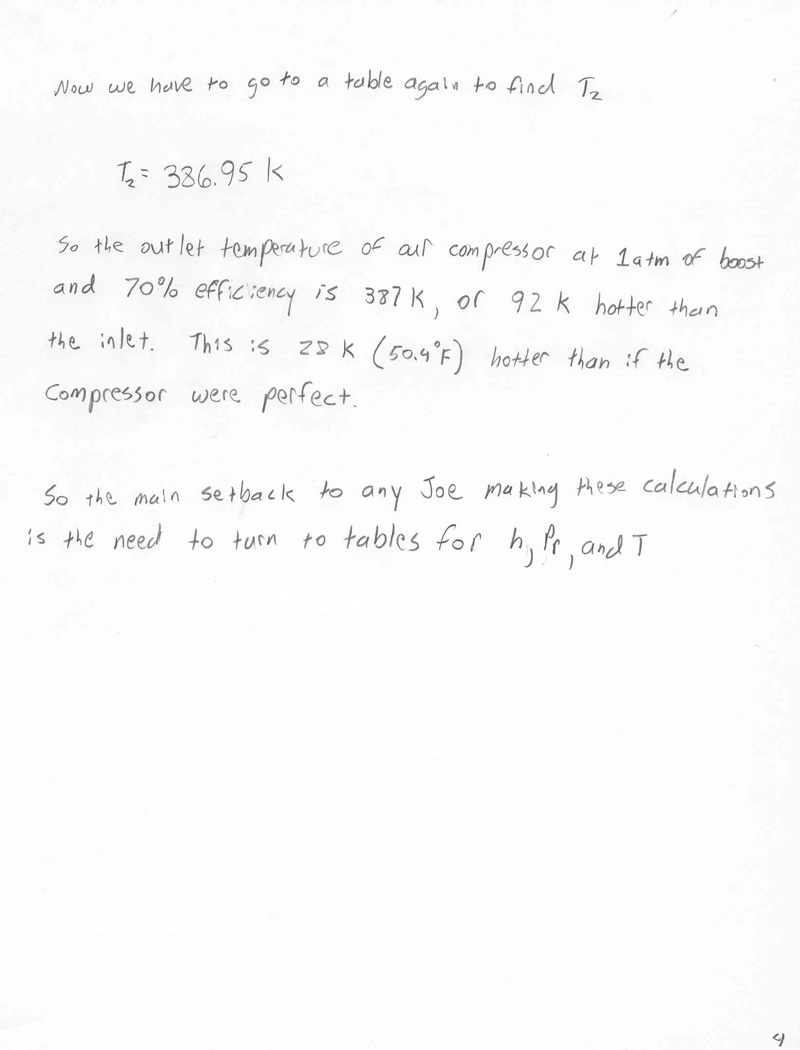 Now we have to go to a table again to find T₂
T₂ = 386.95 K
So the outlet temperature of our compressor at 1atm of boost
and 70% efficiency is 387 K, or 92 K hotter than
the inlet. This is 28 K (50.4°F) hotter than if the
Compressor were perfect.
So the main setback to any Joe making these calculations
is the need to turn to tables for h, Pr, and T
4